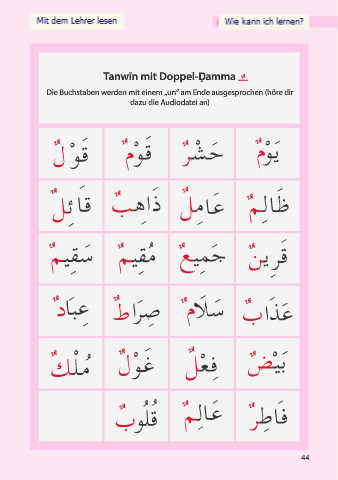 Mit dem Lehrer lesen
Wie kann ich lernen?
Tanwīn mit Doppel-Ḍamma ـٌ
Die Buchstaben werden mit einem „un“ am Ende ausgesprochen (höre dir
dazu die Audiodatei an)
يَوْمٌ حَشْرٌ قَوْمٌ قَوْلٌ
ظَالِمٌ عَامِلٌ ذَاهِبٌ قَائِلٌ
قَرِينٌ جَمِيعٌ مُقِيمٌ سَقِيمٌ
عَذَابٌ سَلَامٌ صِرَاطٌ عِبَادٌ
بَيْضٌ فِعْلٌ غَوْلٌ مُلْكٌ
فَاطِرٌ عَالِمٌ قُلُوبٌ
44